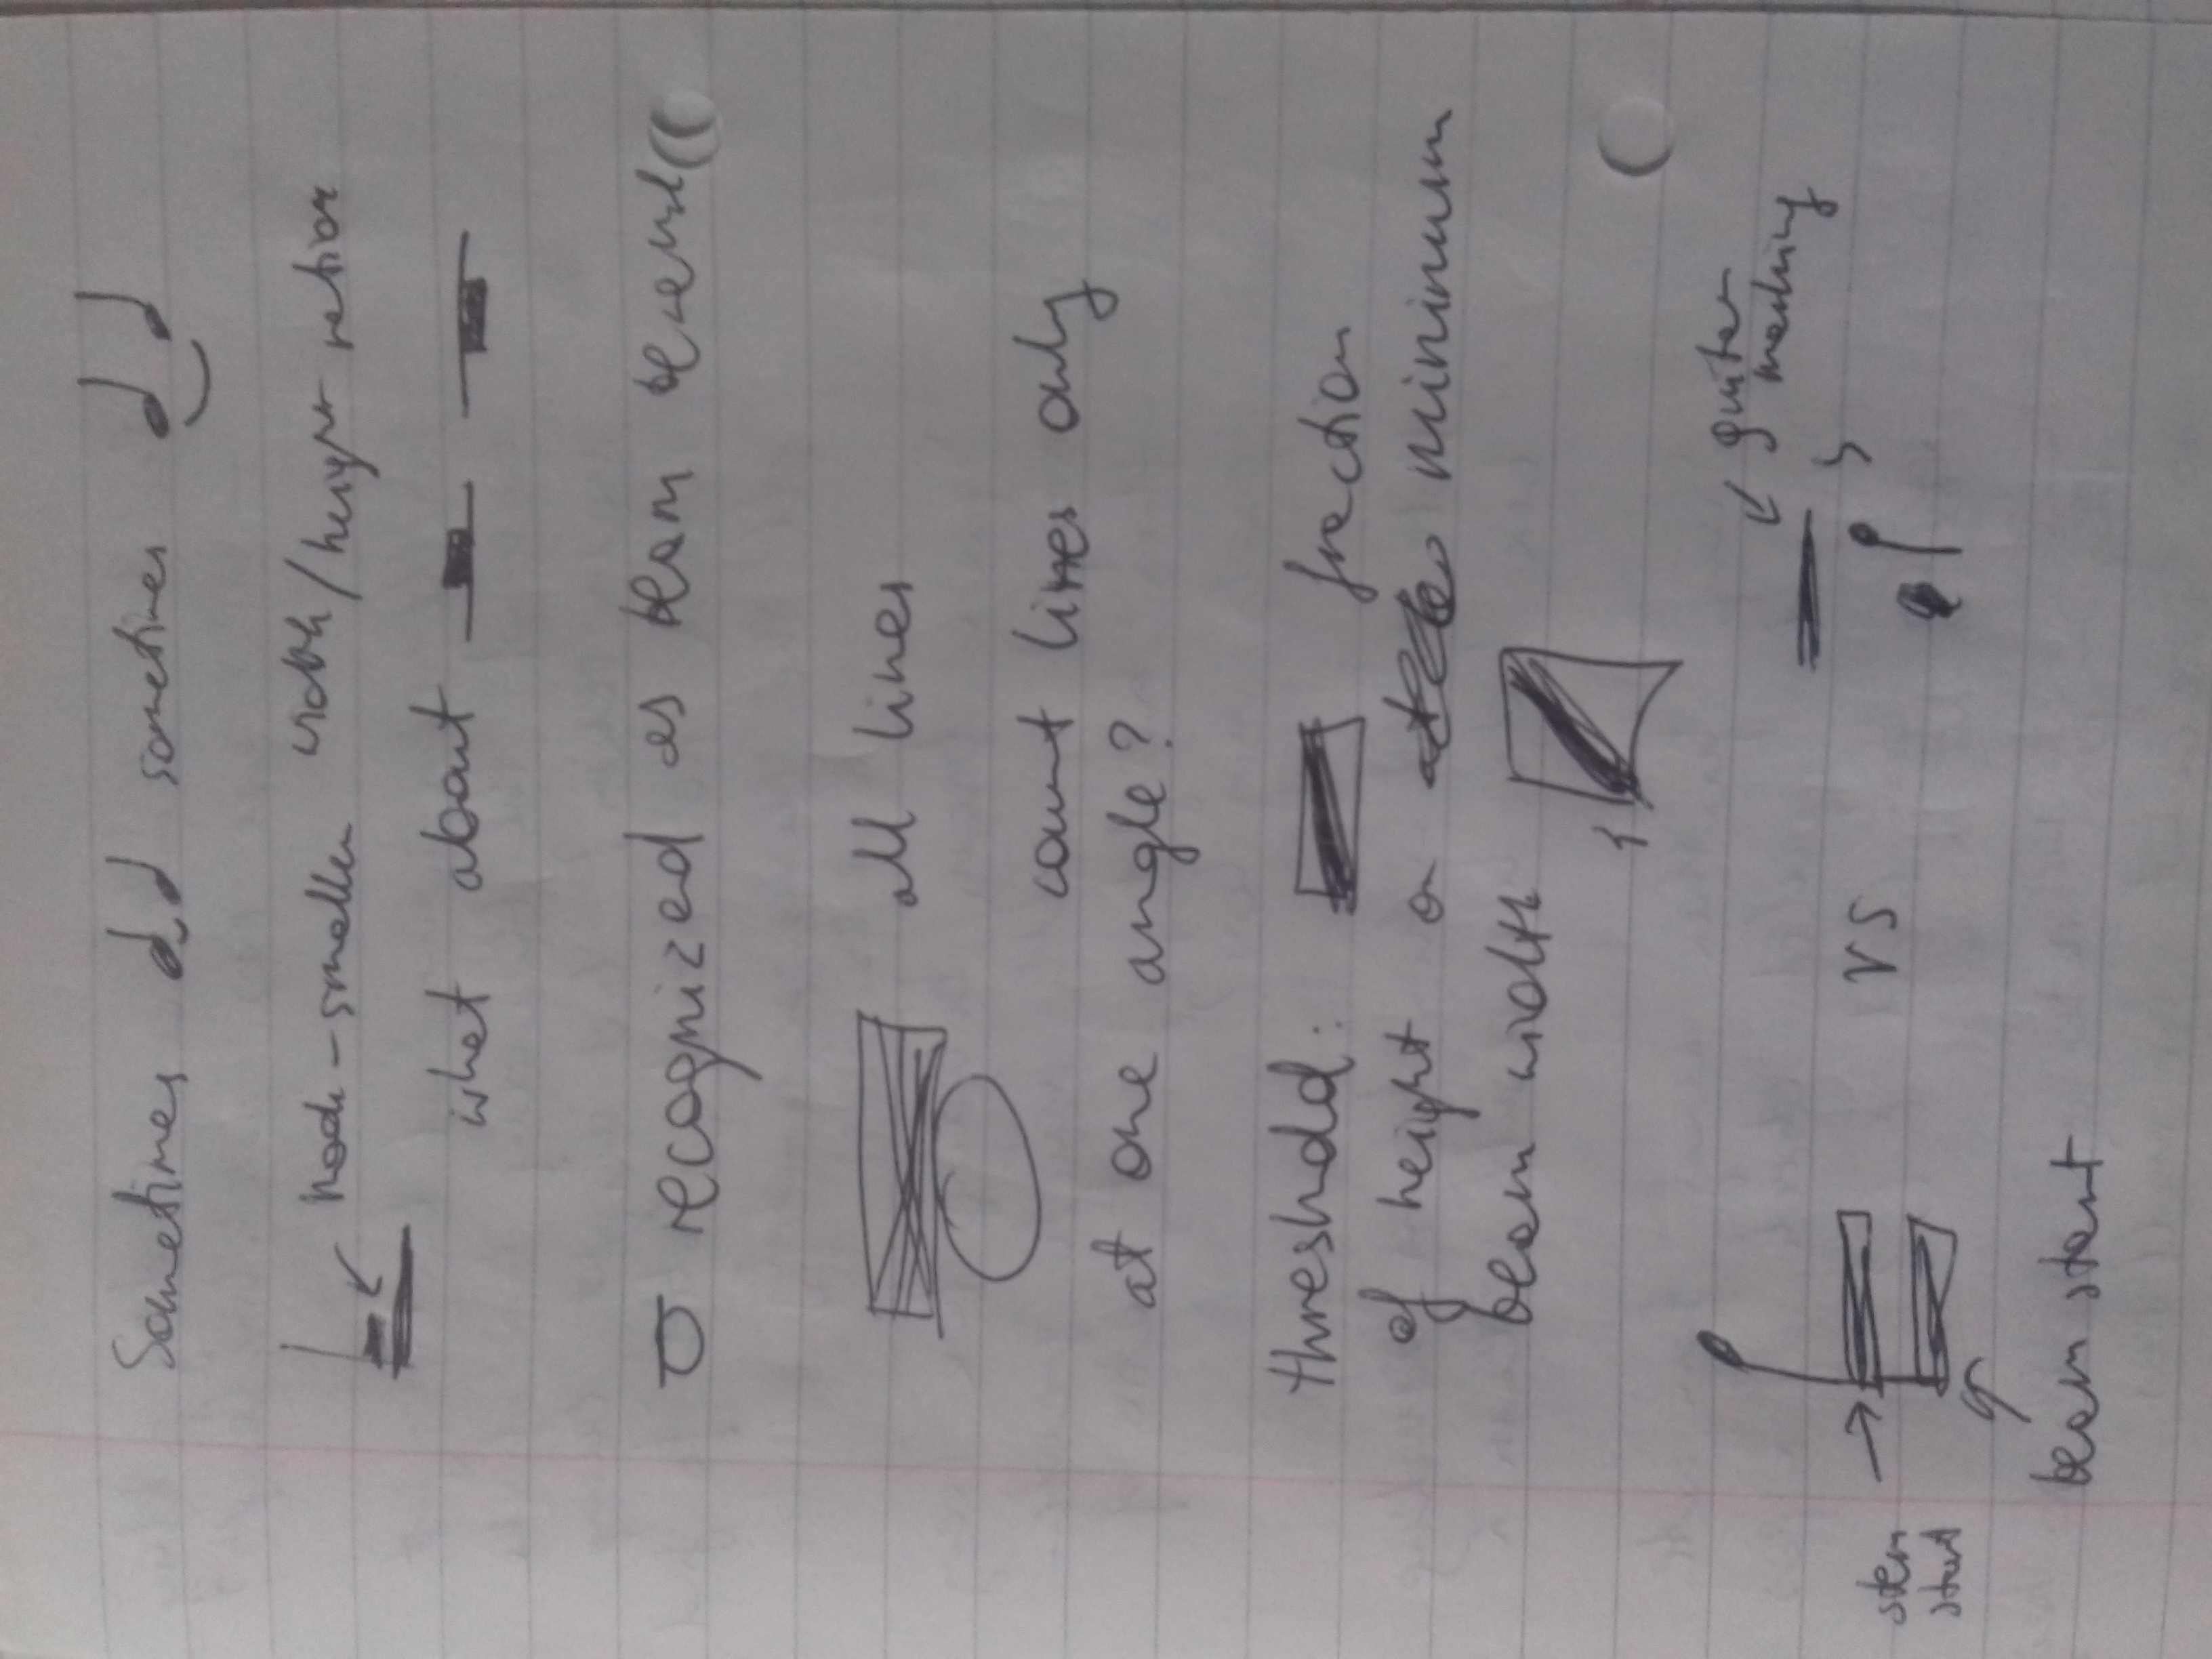 Sometimes sometimes
hook - smaller width/height ration
what about
recognized as beam because
all lines
count lines only
at one angle?
threshold: fraction
of height or minimum
beam width
1
guitar
marking
vs
stem
start
beam start